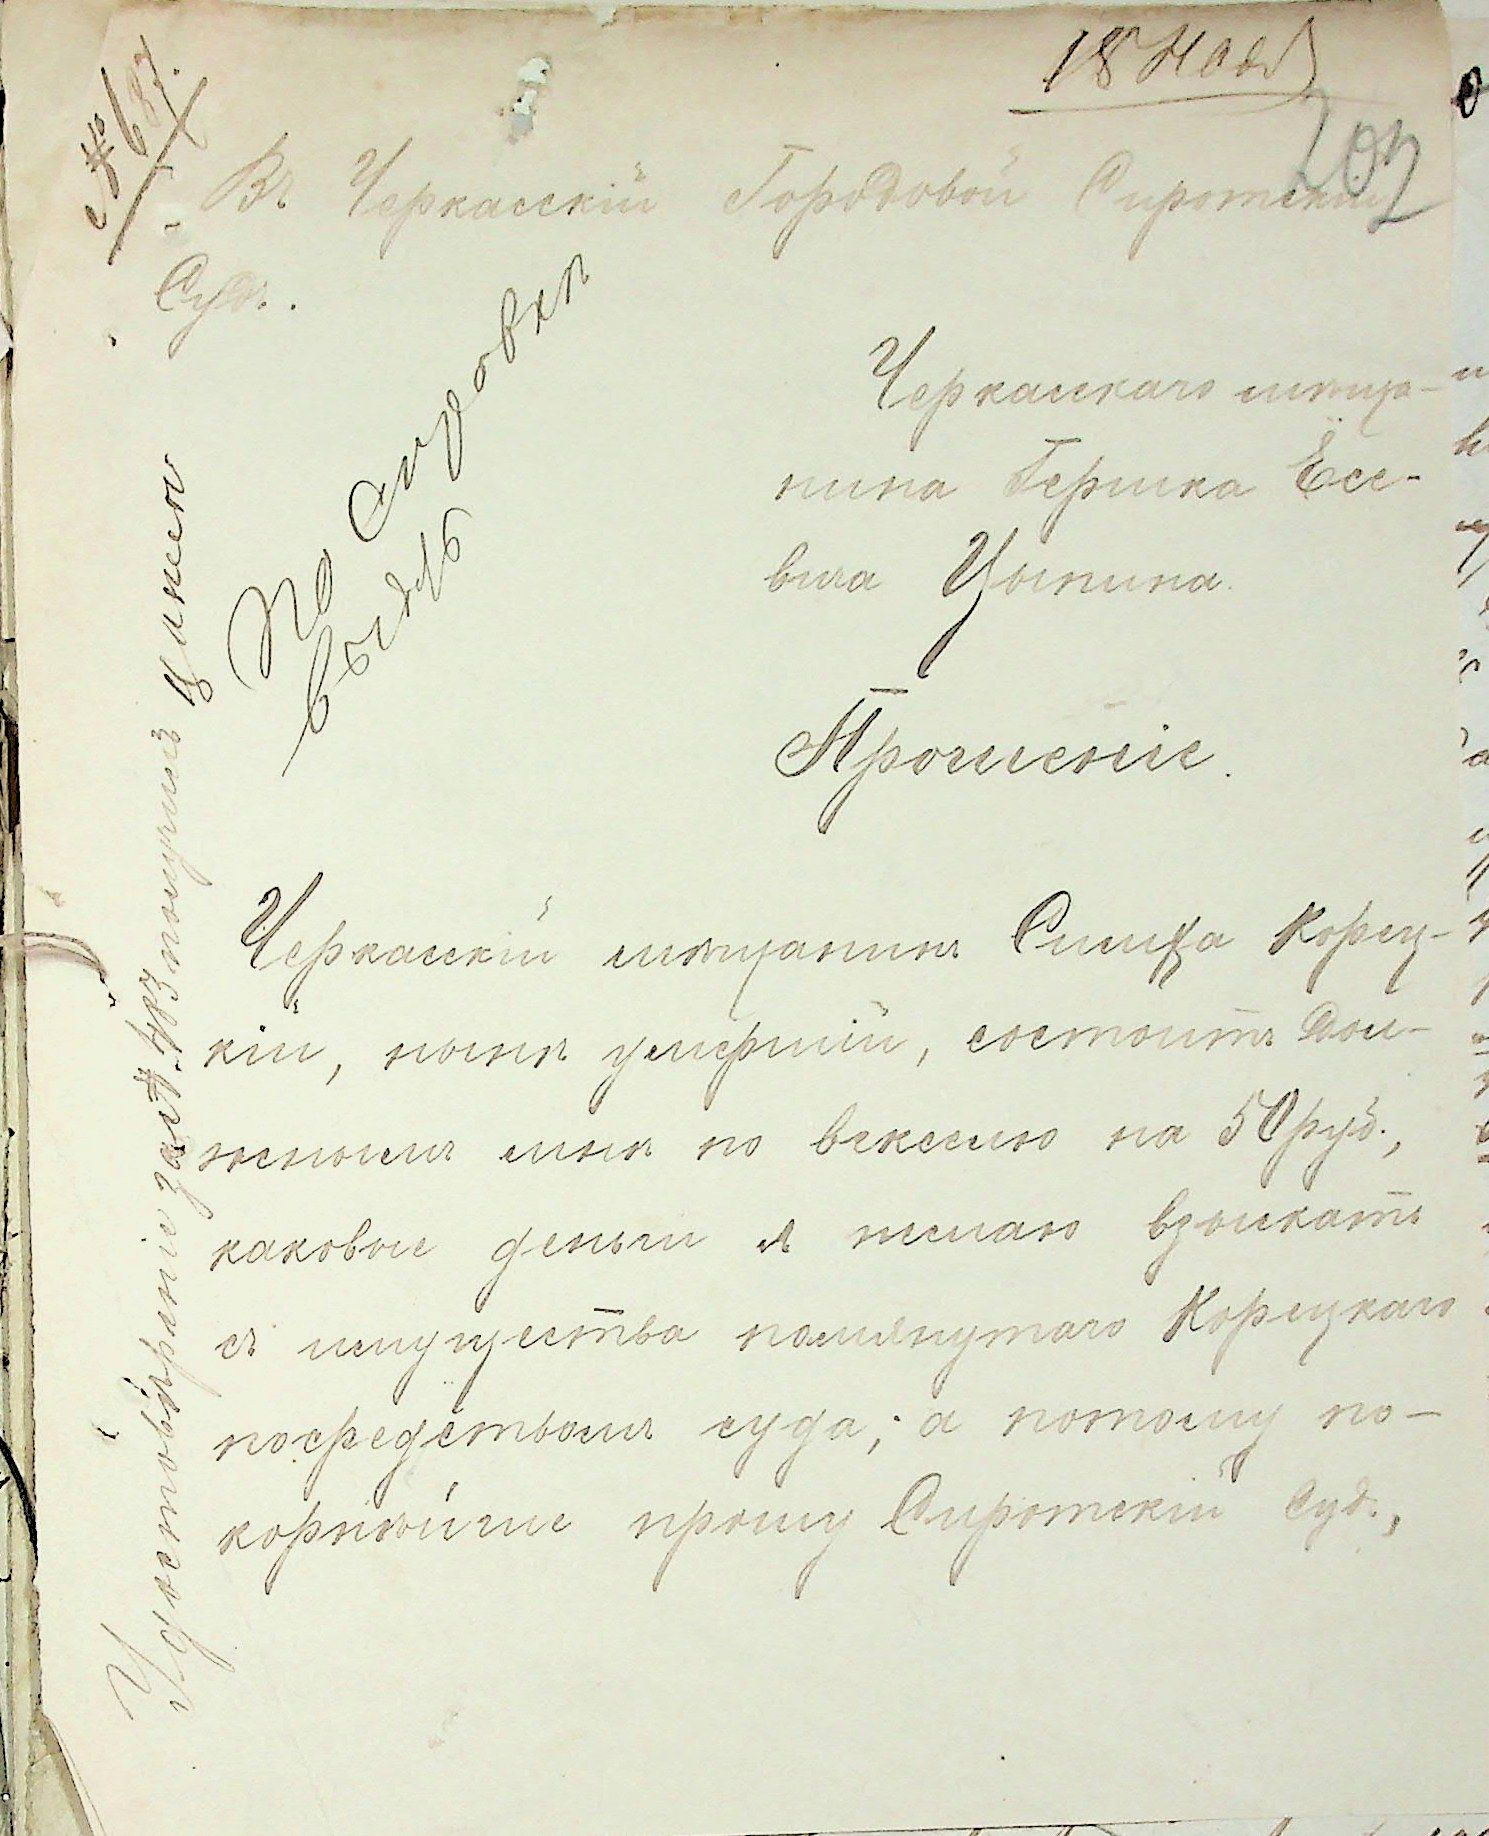 № 687.
18 Нояб
202
Въ Черкасскій Городовой Сиротскій
Судъ.
Черкасскаго мѣща-
нина Гершка Есе-
вича Цыпина.
Прошеніе.
По
выдать
Черкасскій мѣщанинъ Симха Корец-
кій, нынѣ умершій, состоитъ дол-
женымъ мнѣ по векселю на 50 руб.,
каковые деньги я желаю взыскать
съ имущества помянутаго Корецкаго
посредствомъ суда; а потому по-
корнѣйше прошу Сиротскій Судъ,
Удостовѣреніе за № 483 получилъ